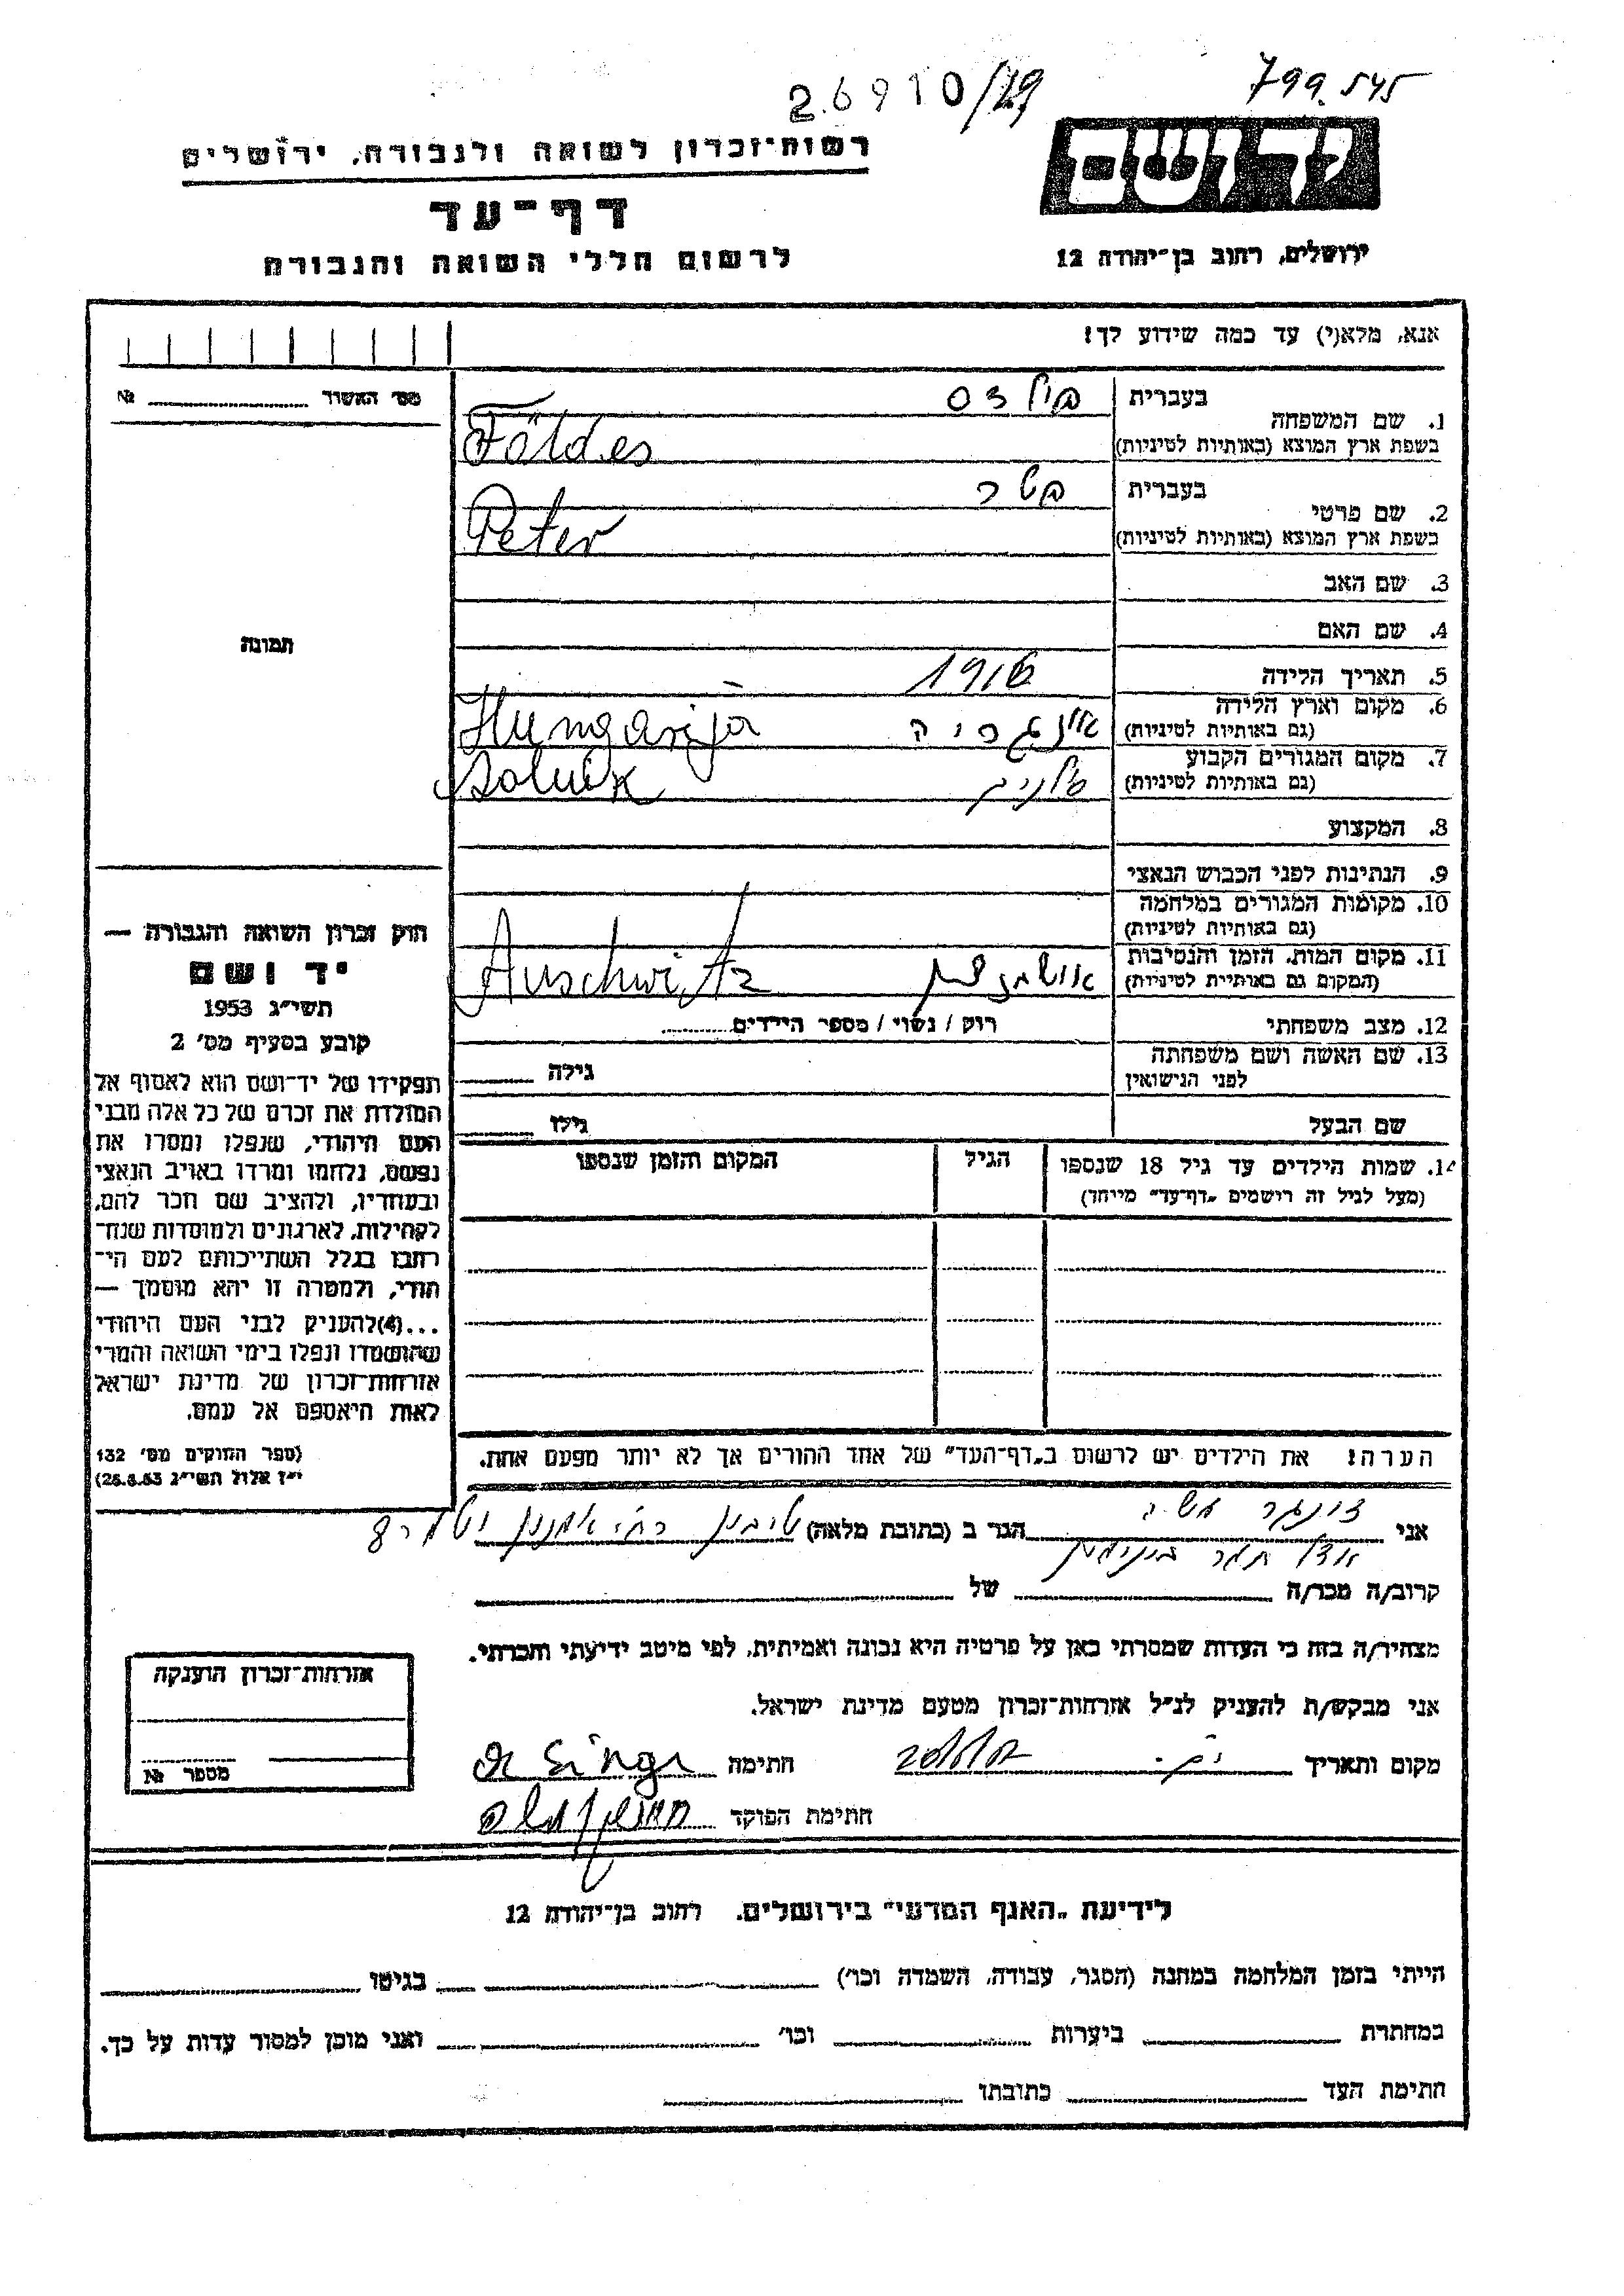 26910/19
799.545
רשות־זכרון לשואה ולגבורה, ירושלים
דף־עד
לרשום חללי השואה והגבורה
יד ושם
ירושלים, רחוב בן־יהודה 12
אנא, מלא(י) עד כמה שידוע לך!
מס׳ האשור № 
1. שם המשפחה
בעברית
בשפת ארץ המוצא (באותיות לטיניות) Földes
2. שם פרטי
בעברית פטר
בשפת ארץ המוצא (באותיות לטיניות) Peter
3. שם האב
4. שם האם
5. תאריך הלידה 1916
6. מקום וארץ הלידה
(גם באותיות לטיניות) Hungarija
7. מקום המגורים הקבוע
(גם באותיות לטיניות)
8. המקצוע
9. הנתינות לפני הכבוש הנאצי
10. מקומות המגורים במלחמה
(גם באותיות לטיניות)
11. מקום המות, הזמן והנסיבות
(המקום גם באותיות לטיניות) Auschwitz
12. מצב משפחתי רוק / נשוי / מספר הילדים
13. שם האשה ושם משפחתה
לפני הנישואין גילה
שם הבעל גילו
14. שמות הילדים עד גיל 18 שנספו הגיל המקום והזמן שנספו
(מעל לגיל זה רישמים „דף־עד" מייחד)
הערה! את הילדים יש לרשום ב„דף־העד" של אחד ההורים אך לא יותר מפעם אחת.
תמונה
חוק זכרון השואה והגבורה —
יד ושם
תשי״ג 1953
קובע בסעיף מס׳ 2
תפקידו של יד־ושם הוא לאסוף אל
המולדת את זכרם של כל אלה מבני
העם היהודי, שנפלו ומסרו את
נפשם, נלחמו ומרדו באויב הנאצי
ובעוזריו, ולהציב שם וזכר להם,
לקהילות, לארגונים ולמוסדות שנח־
רבו בגלל השתייכותם לעם הי־
הודי, ולמטרה זו יהא מוסמך —
...(4)להעניק לבני העם היהודי
שהושמדו ונפלו בימי השואה והמרי
אזרחות־זכרון של מדינת ישראל
לאות היאספם אל עמם.
(ספר החוקים מס׳ 132
י״ז אלול תשי״ג 28.8.53)
אני הגר ב (כתובת מלאה)
קרוב/ה מכר/ה של
מצהיר/ה בזה כי העדות שמסרתי כאן על פרטיה היא נכונה ואמיתית, לפי מיטב ידיעתי והכרתי.
אני מבקש/ת להעניק לנ״ל אזרחות־זכרון מטעם מדינת ישראל.
מקום ותאריך חתימה
חתימת הפוקד
אזרחות־זכרון הוענקה
מספר №
לידיעת „האגף המדעי" בירושלים, רחוב בן־יהודה 12
הייתי בזמן המלחמה במחנה (הסגר, עבודה, השמדה וכו׳) בגיטו
במחתרת ביערות וכו׳ ואני מוכן למסור עדות על כך.
חתימת העד כתובתו